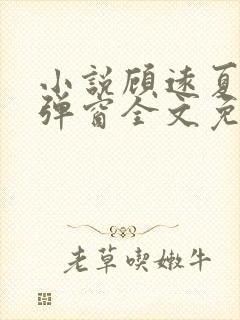 小説顾速夏
弹窗全文免
老草喫嫩牛